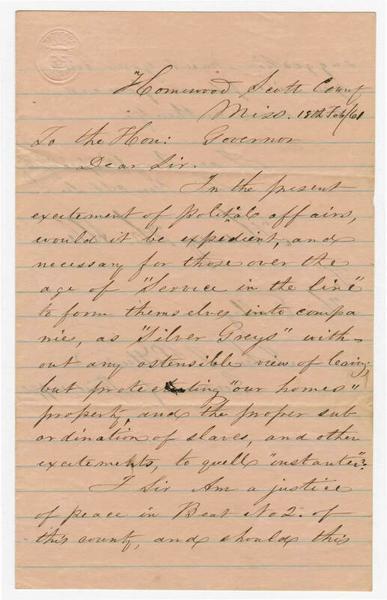 Homewood Scott County
Miss. 18th Feb/61
To the Hon: Governor
Dear Sir.
In the present
excitement of political affairs,
would it be expedient, and
necessary for those over the
age of "Service in the line"
to form themselves into compa
nies, as "Silver Greys" with-
out any ostensible view of leaving,
but protecting "our homes"
property, and the proper sub
ordination of slaves, and other
excitements, to quell "instanter"?
I Sir Am a justice
of peace in Beat No 2. of
this county, and should this